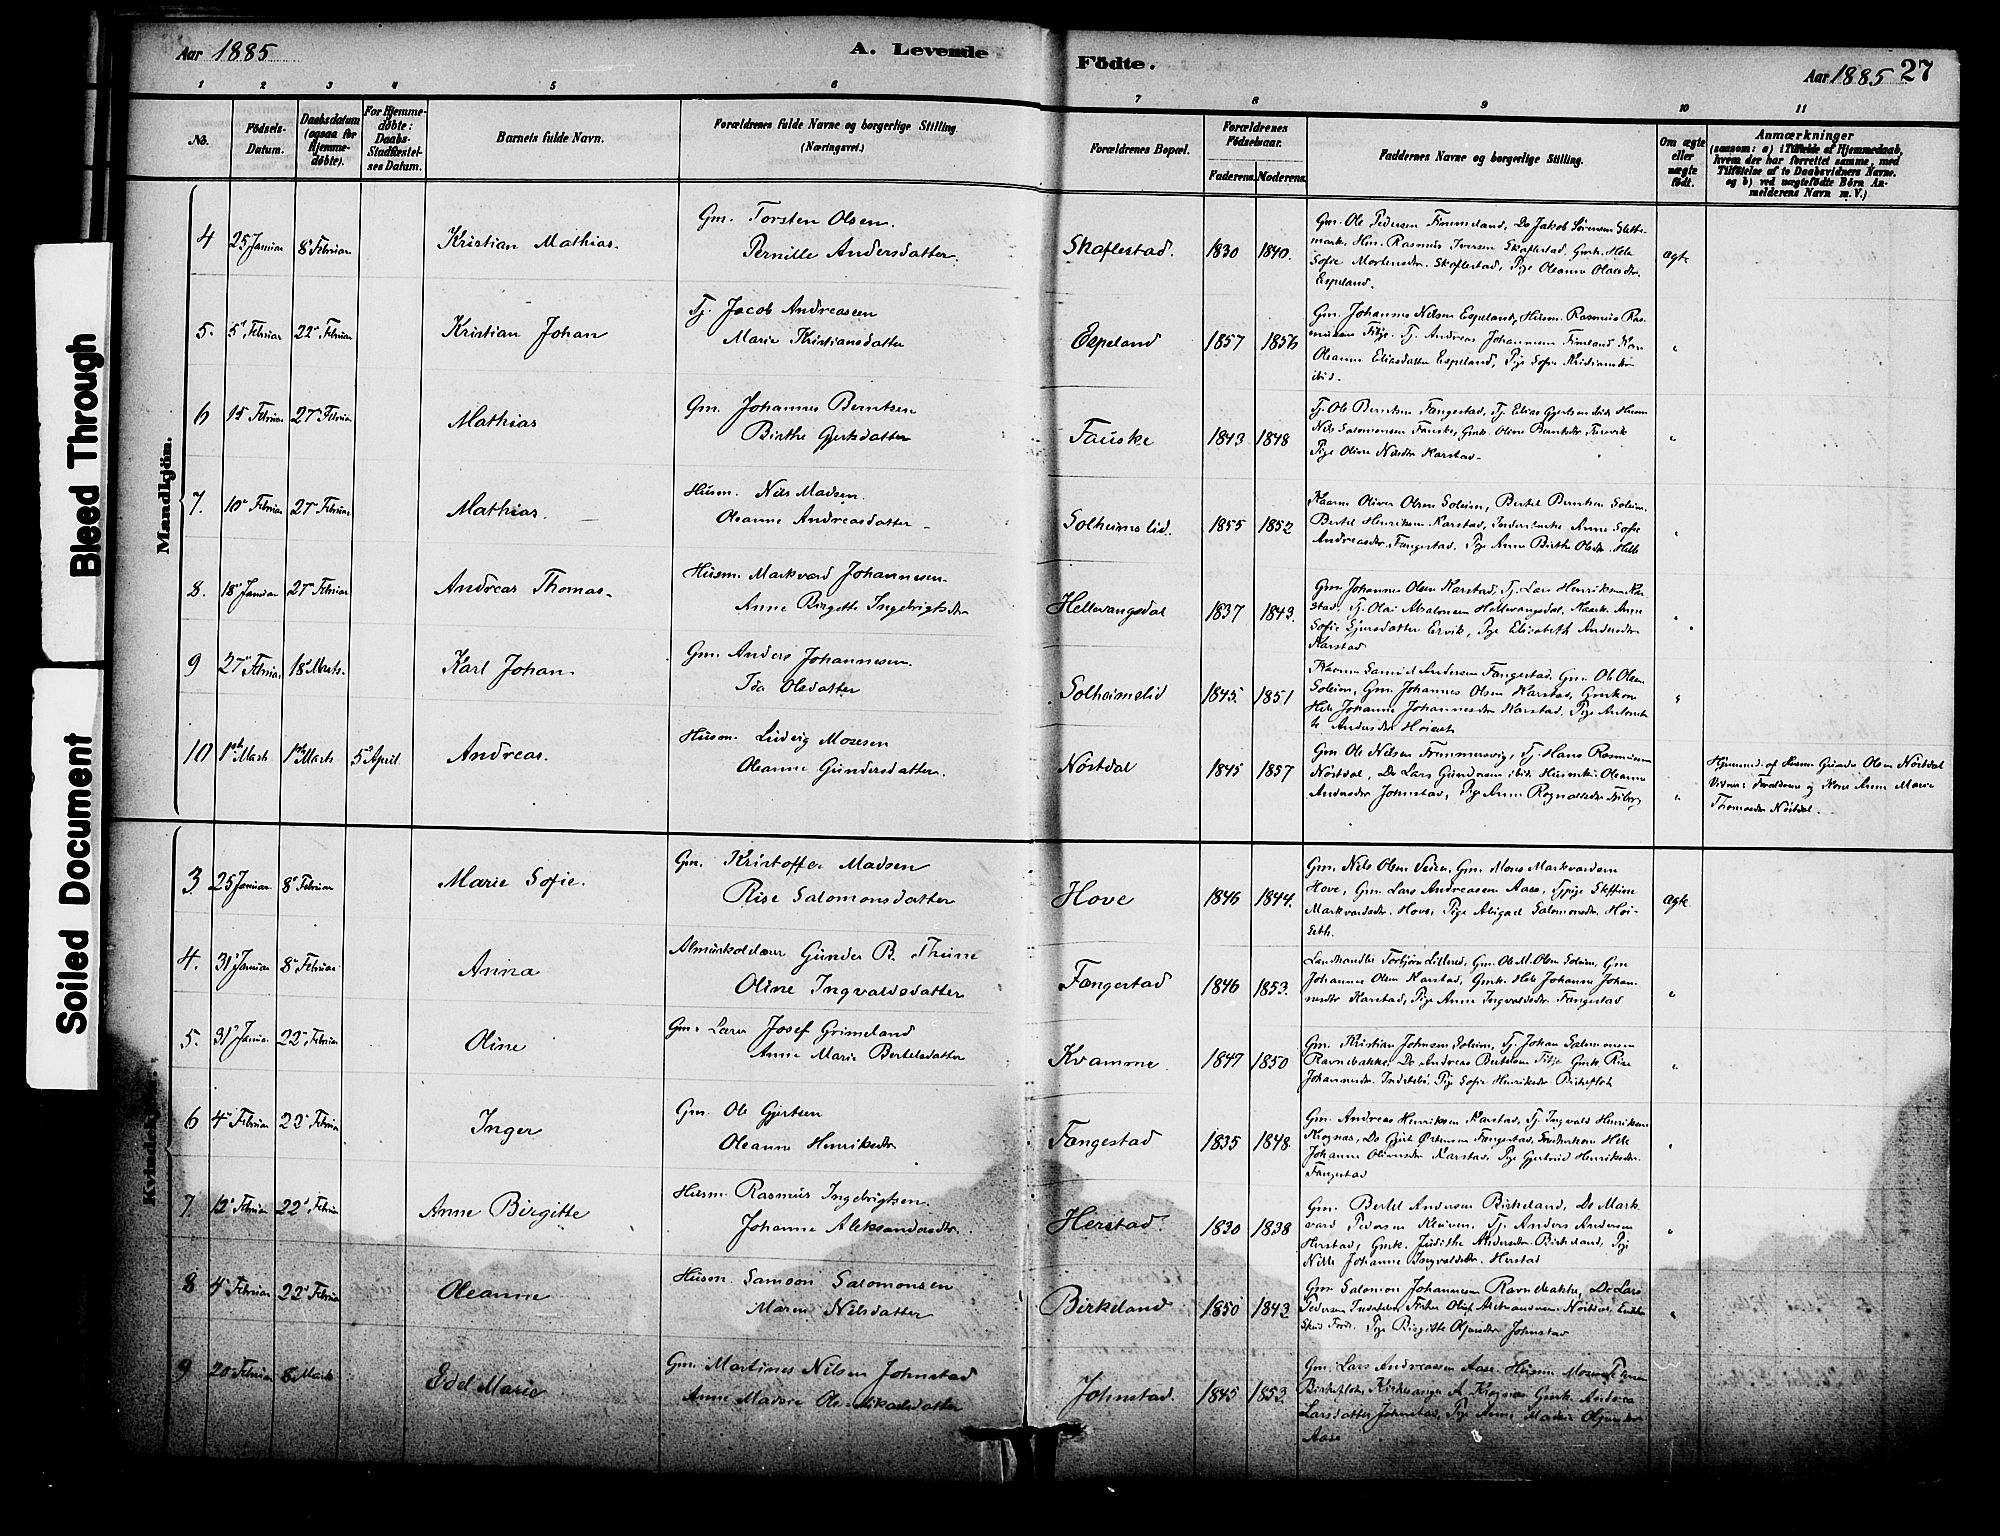 Aar 1885
A. Levende Födte.
Aar 1885 27
1 2 3 4 5 6 7 8 9 10 11
No.
Födsels-Datum.
Daabsdatum (ogsaa for Hjemme-døbte).
For Hjemme-døbte: Daabs-Stadfæstel-ses Datum.
Barnets fulde Navn.
Forældrenes fulde Navne og borgerlige Stilling. (Næringsvei.)
Forældrenes Bopæl.
Forældrenes Födselsaar.
Faderens. Moderens.
Faddernes Navne og borgerlige Stilling.
Om ægte eller uægte født.
Anmærkninger
(saasom: a) i Tilfælde af Hjemmedaab,
hvem der har forrettet samme, med
Tilføielse af to Daabsvidners Navne.
og b) ved uægtefödte Börn An-
melderens Navn m. V.)
Bleed Through
Soiled Document
Mandkjön.
4 25 Januar 8 Februar Kristian Mathias. Gm. Torsten Olsen Pernille Andersdatter. Skaflestad. 1830 1840.
Gm. Ole Pedersen Fimmeland, Do Jakob Sörensen Slette-
mark, Hsm. Rasmus Iversen Skaflestad, Gmk. Hele
Sofie Mortensdtr. Skaflestad, Pige Oleanna Olaisdtr.
Espeland.
ægte
5. 5 Februar 22 Februar Kristian Johan Tj. Jacob Andreasen Marie Kristiansdatter Espeland 1857 1856
Gm. Johannes Nilsen Espeland, Husm. Rasmus Ras-
mussen Titje. Tj. Andreas Johannesen Fimland Kone
Oleanne Eliasdatter Espeland, Pige Sofie Kristiansdtr
ibid.
"
6 15 Februar 27 Februar Mathias Gm. Johannes Berntsen Birthe Gjertsdatter Fauske 1843 1848
Tj. Ole Berntsen Fangestad, Tj. Elias Gjertsen ibid. Husm
Nils Salomonsen Fauske, Gmk. Oline Berntsdtr
Pige Oline Nilsdtr Karstad.
"
7. 10 Februar 27 Februar Mathias. Husm. Nils Madsen. Oleanne Andreasdatter Solheimslid. 1855 1852
Oliver Olsen Soleim, Bertel Berntsen Soleim,
Bertel Henriksen Karstad, Anne Sofie
Andreasdtr. Fangestad, Pige Anne Birthe Olsdtr. Helle
"
8. 18 Januar 27 Februar Andreas Thomas. Husm. Markvard Johannesen. Anne Birgitte Ingebrigtsdtr Hellevangsdal 1837 1843.
Gm. Johannes Olsen Karstad, Tj. Lars Henriksen Kar-
stad, Tj. Olai Absalonsen Hellevangsdal, Anne
Sofie Sjursdatter Ervik, Pige Elisabeth Andersdtr
Karstad
"
9 27 Februar 18 Marts. Karl Johan. Gm. Anders Johannesen. Ida Olsdatter Solheimslid 1845. 1851
Samuel Andersen Fangestad, Gm. Ole Olsen
Soleim, Gm. Johannes Olsen Karstad, Gmkone
Hele Johanne Johannesdtr Karstad. Pige Antonet-
te Andersdtr
"
10 1ste Marts 1ste Marts 5 April. Andreas. Husm. Ludvig Mosesen Oleanne Gundersdatter. Nöstdal 1845 1857
Gm. Ole Nilsen Frimmersvig, Tj. Hans Rasmussen
Nöstdal, Do Lars Gundersen ibid. Oleanne
Andersdtr Johnstad, Pige Anne Rognaldsdtr
"
Hjemmed. af Husm Gunder Olsen Nöstdal
Vidner: Forældrene og Kone Anne Marie
Thomasdtr Nöstdal.
Kvindekjön.
3 25 Januar 8 Februar Marie Sofie. Gm. Kristoffer Madsen Rise Salomonsdatter Hove 1846 1844.
Gm. Nils Olsen Veien, Gm. Mons Markvardsen
Hove, Gm. Lars Andreasen Aase,
Markvardsdtr. Hove, Pige Abigael Salomonsdtr. Höi-
seth.
ægte
4. 31 Januar 8 Februar Anna Almueskolelærer Gunder B. Thune Oline Ingvaldsdatter Fangestad 1846 1853.
Landhandler Torbjörn Lilleröd, Gm. Ole M. Olsen Soleim, Gm
Johannes Olsen Karstad, Gmk. Hele Johanne Johan-
nesdtr Karstad, Pige Anne Ingvaldsdtr. Fangestad
"
5. 31 Januar 22 Februar Oline Gm. Lars Josef Grimeland Anne Marie Bertelsdatter Kvamme 1847 1850
Gm. Kristian Johnsen Soleim, Tj. Johan Salomonsen
Ravnebakke, Do Andreas Bertelsen Titje Gmk Rise
Johannesdtr. Indrebö, Pige Sofie Henriksdtr. Birkeflot
"
6 4 Februar 22 Februar Inger Gm. Ole Gjertsen Oleanne Henriksdtr Fangestad 1835 1848.
Gm. Andreas Henriksen Karstad, Tj. Ingvald Henriksen
Do Gjert Fangestad, Hele
Johanne Oliversdtr Karstad, Pige Gjertrud Henriksdtr.
Fangestad
"
7. 12 Februar 22 Februar Anne Birgitte Husm. Rasmus Ingebrigtsen. Johanne Aleksandersdtr. Herstad. 1830 1838
Gm. Bertel Andersen Birkeland, Do Mark-
vard Pedersen Kleiven, Tj. Anders Andersen
Herstad, Gmk. Judithe Andersdtr Birkeland, Pige
Nille Johanne Ingvaldsdtr. Herstad
"
8 4 Februar 22 Februar Oleanne Husm. Samson Salomonsen Maren Nilsdatter Birkeland 1850 1843
Gm. Salomon Johannesen Ravnebakke, Do Lars
Pedersen Olaf Aleksandersen Nöstdal,
Pige Birgitte Olsdtr Johnstad
"
9 20 Februar 8 Marts Edel Marie Gm. Martines Nilsen Johnstad Anne Madore Ole-Mikalsdatter Johnstad. 1845 1853.
Gm. Lars Andreassen Aase. Husm
Birkeflot, Kirkesanger A. Gmk. Andrea
Larsdatter Johnstad, Pige Anne
Aase